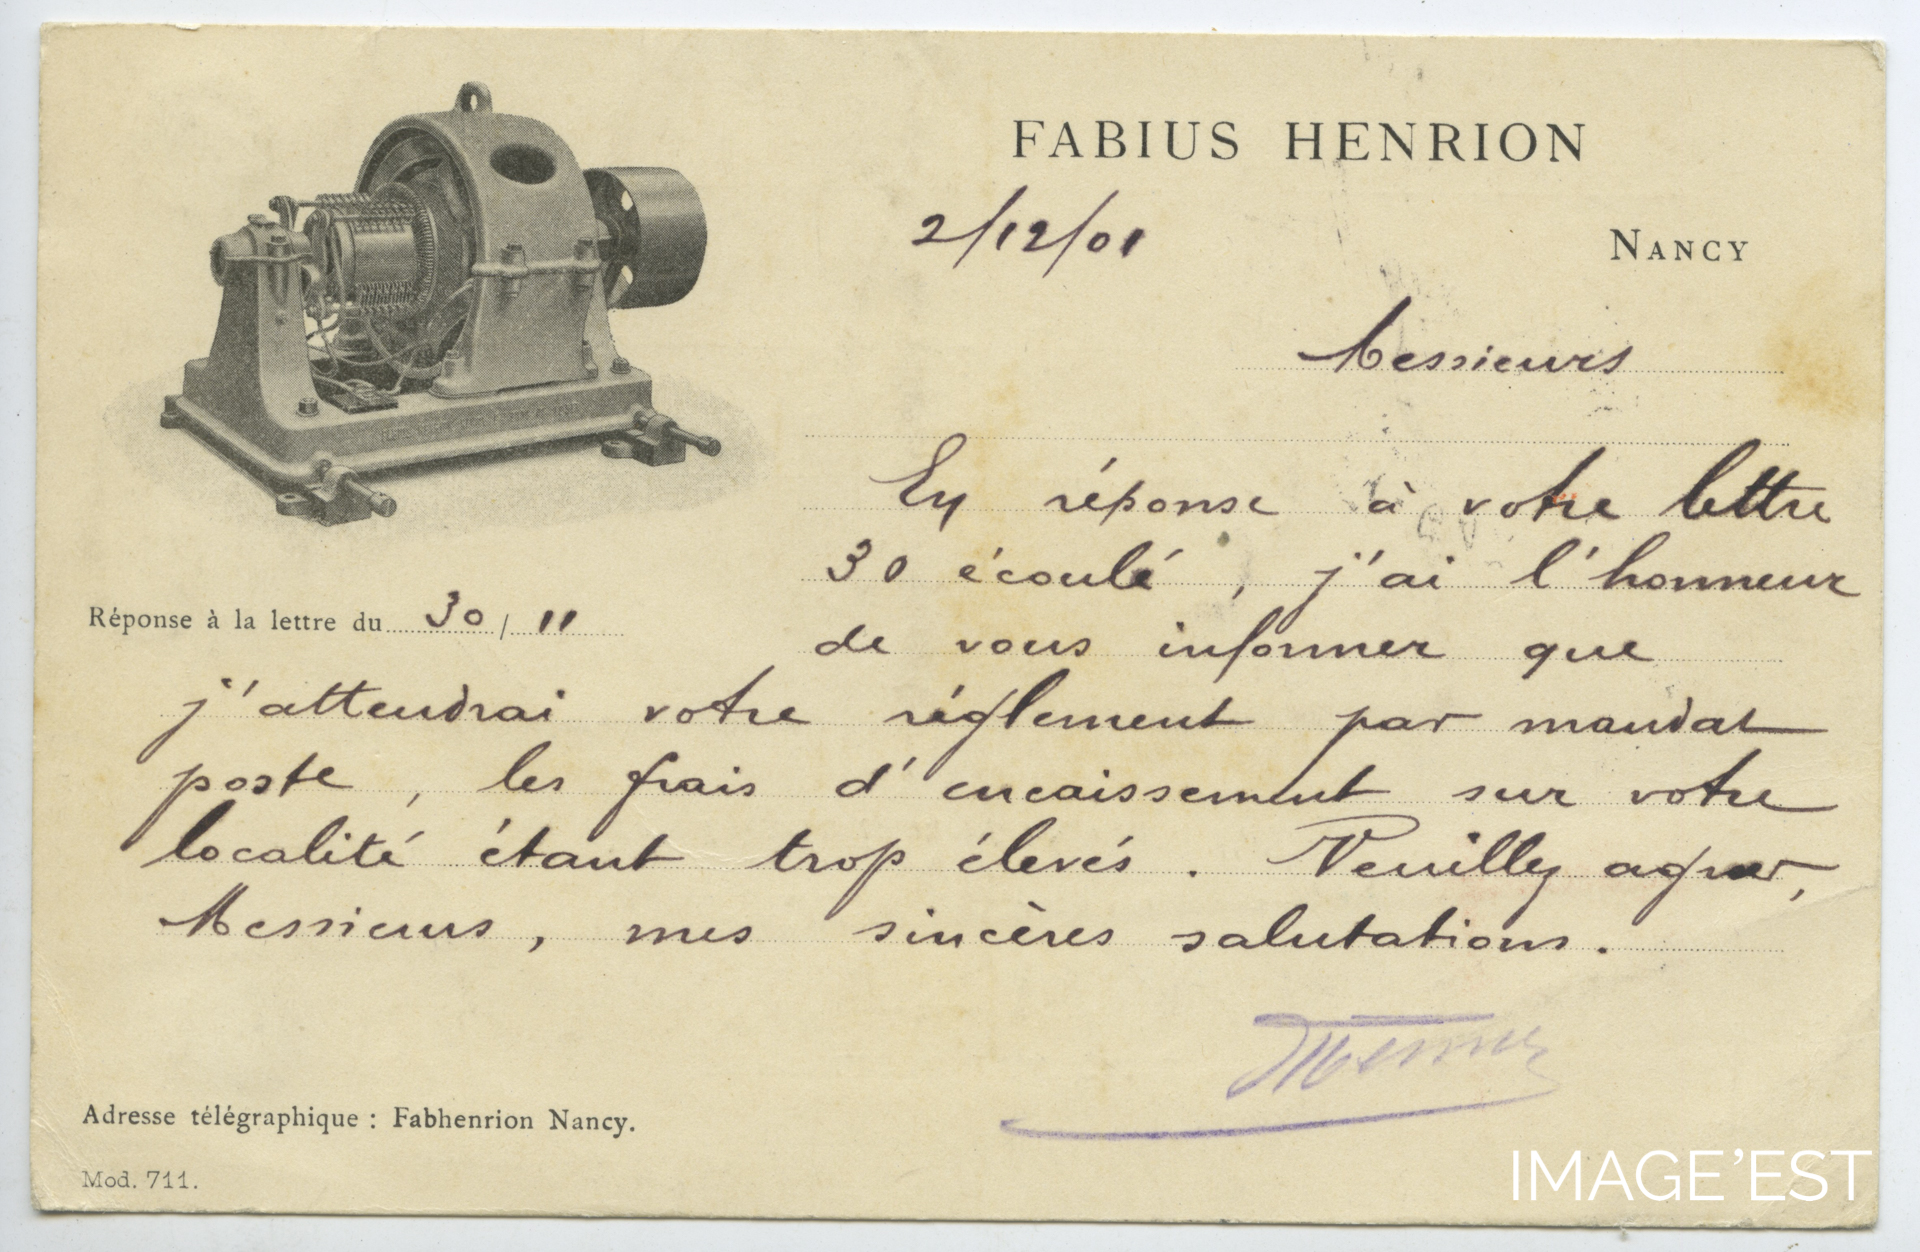 FABIUS HENRION
2/12/01
NANCY
Messieurs
En réponse à votre lettre
30 écoulé, j'ai l'honneur
Réponse à la lettre du 30/11
de vous informer que
j'attendrai votre réglement par mandat
poste, les frais d'encaissement sur votre
localité étant trop élevés. Veuillez agréer,
Messieurs, mes sincères salutations.
Adresse télégraphique : Fabhenrion Nancy.
Mod. 711.
IMAGE'EST